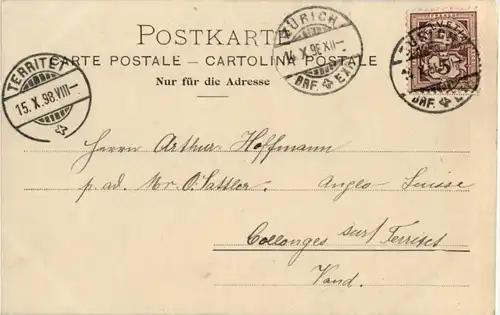 POSTKARTE
CARTE POSTALE — CARTOLINA POSTALE
Nur für die Adresse
ZÜRICH
14.X.98.XII—
BRF. EXP.
TERRITET
15.X.98.VIII—
ZÜRICH
BRF. EXP.
5
Herrn Arthur Hoffmann
p. ad. Mr. O. Sattler. Anglo Suisse
Collonges surt Territet
Vaud.